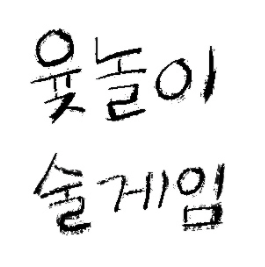 윷놀이
술게임